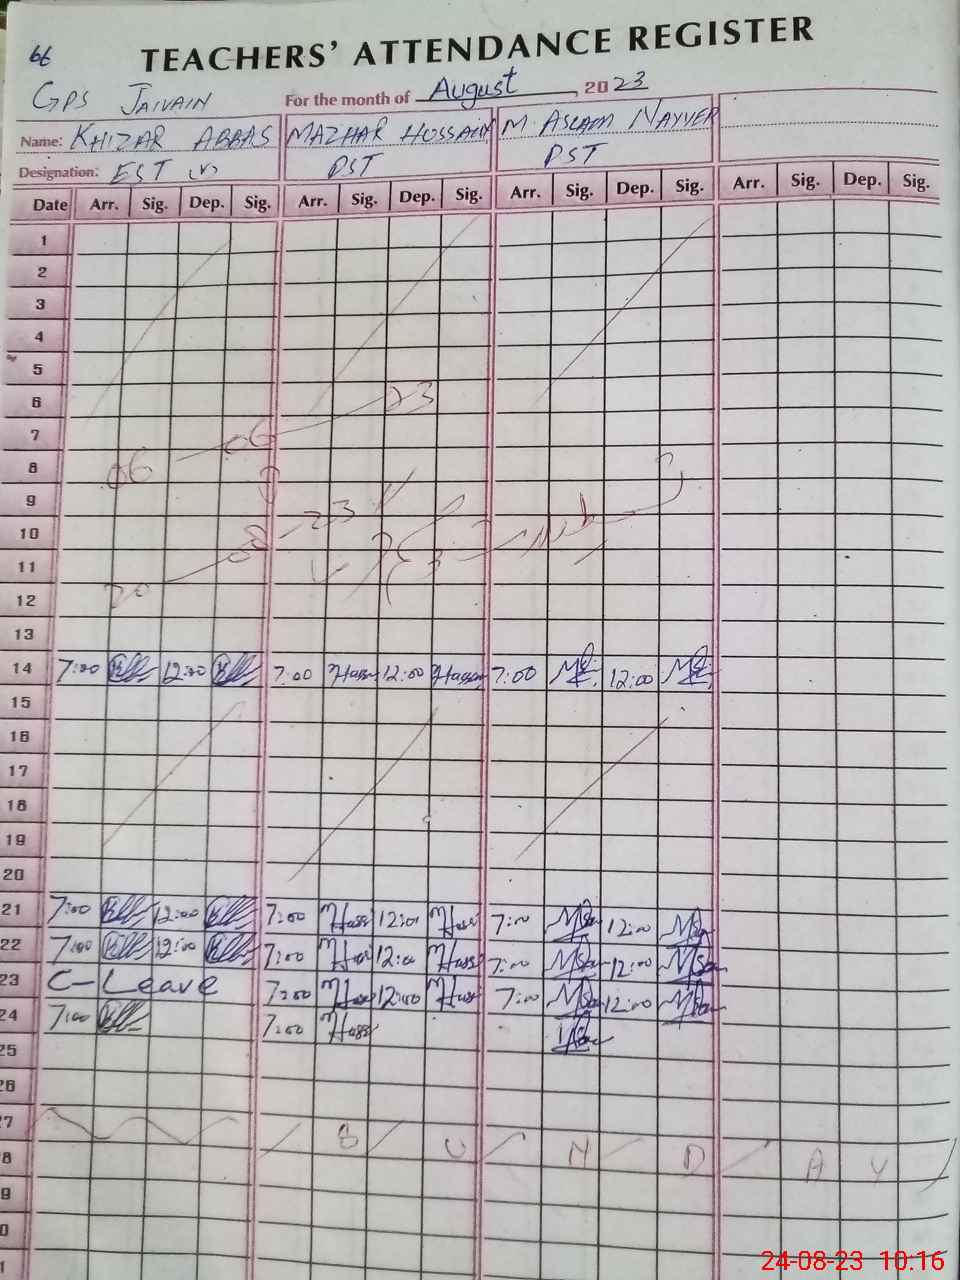 66
TEACHERS' ATTENDANCE REGISTER
GPS JAIVAIN For the month of August 2023
Name: KHIZAR ABBAS MAZHAR HUSSAIN M ASLAM NAYYER
Designation: EST PST PST
Date Arr. Sig. Dep. Sig. Arr. Sig. Dep. Sig. Arr. Sig. Dep. Sig. Arr. Sig. Dep. Sig.
1
2
3
4
5
6 23
7 06
8 06
9
10 -23
11 08
12 20
13
14 7:00 12:00 7:00 12:00 7:00 12:00
15
16
17
18
19
20
21 7:00 12:00 7:00 12:00 7:00 12:00
22 7:00 12:00 7:00 12:00 7:00 12:00
23 C-Leave 7:00 12:00 7:00 12:00
24 7:00 7:00
25
26
27
8 S U N D A Y
9
0
1
24-08-23 10:16